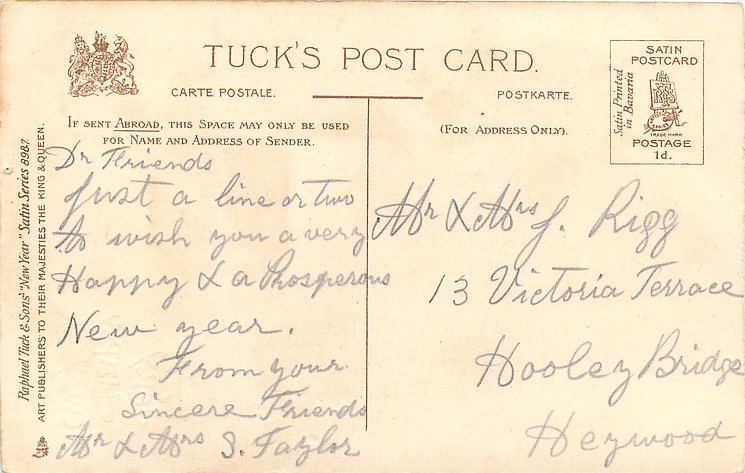 TUCK'S POST CARD.
CARTE POSTALE.
POSTKARTE.
IF SENT ABROAD, THIS SPACE MAY ONLY BE USED
FOR NAME AND ADDRESS OF SENDER.
(FOR ADDRESS ONLY).
SATIN
POSTCARD
Satin Printed
in Bavaria
TRADE MARK
POSTAGE
1d.
Raphael Tuck & Sons' "New Year" Satin Series 8987.
ART PUBLISHERS TO THEIR MAJESTIES THE KING & QUEEN.
Dr Friends
Just a line or two
to wish you a very
Happy & a Prosperous
New year.
From your
Sincere Friends
Mr & Mrs S. Taylor
Mr & Mrs J. Rigg
13 Victoria Terrace
Hooley Bridge
Heywood